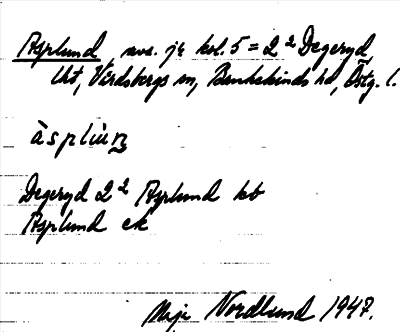 Asplund, avs. jb kol. 5 = 2² Degeryd,
Ut, Vårdsbergs sn, Bankekinds hd, Östg. l.
àspliùn
Degeryd 2² Asplund kb
Asplund ek
Maj Nordlund 1947.